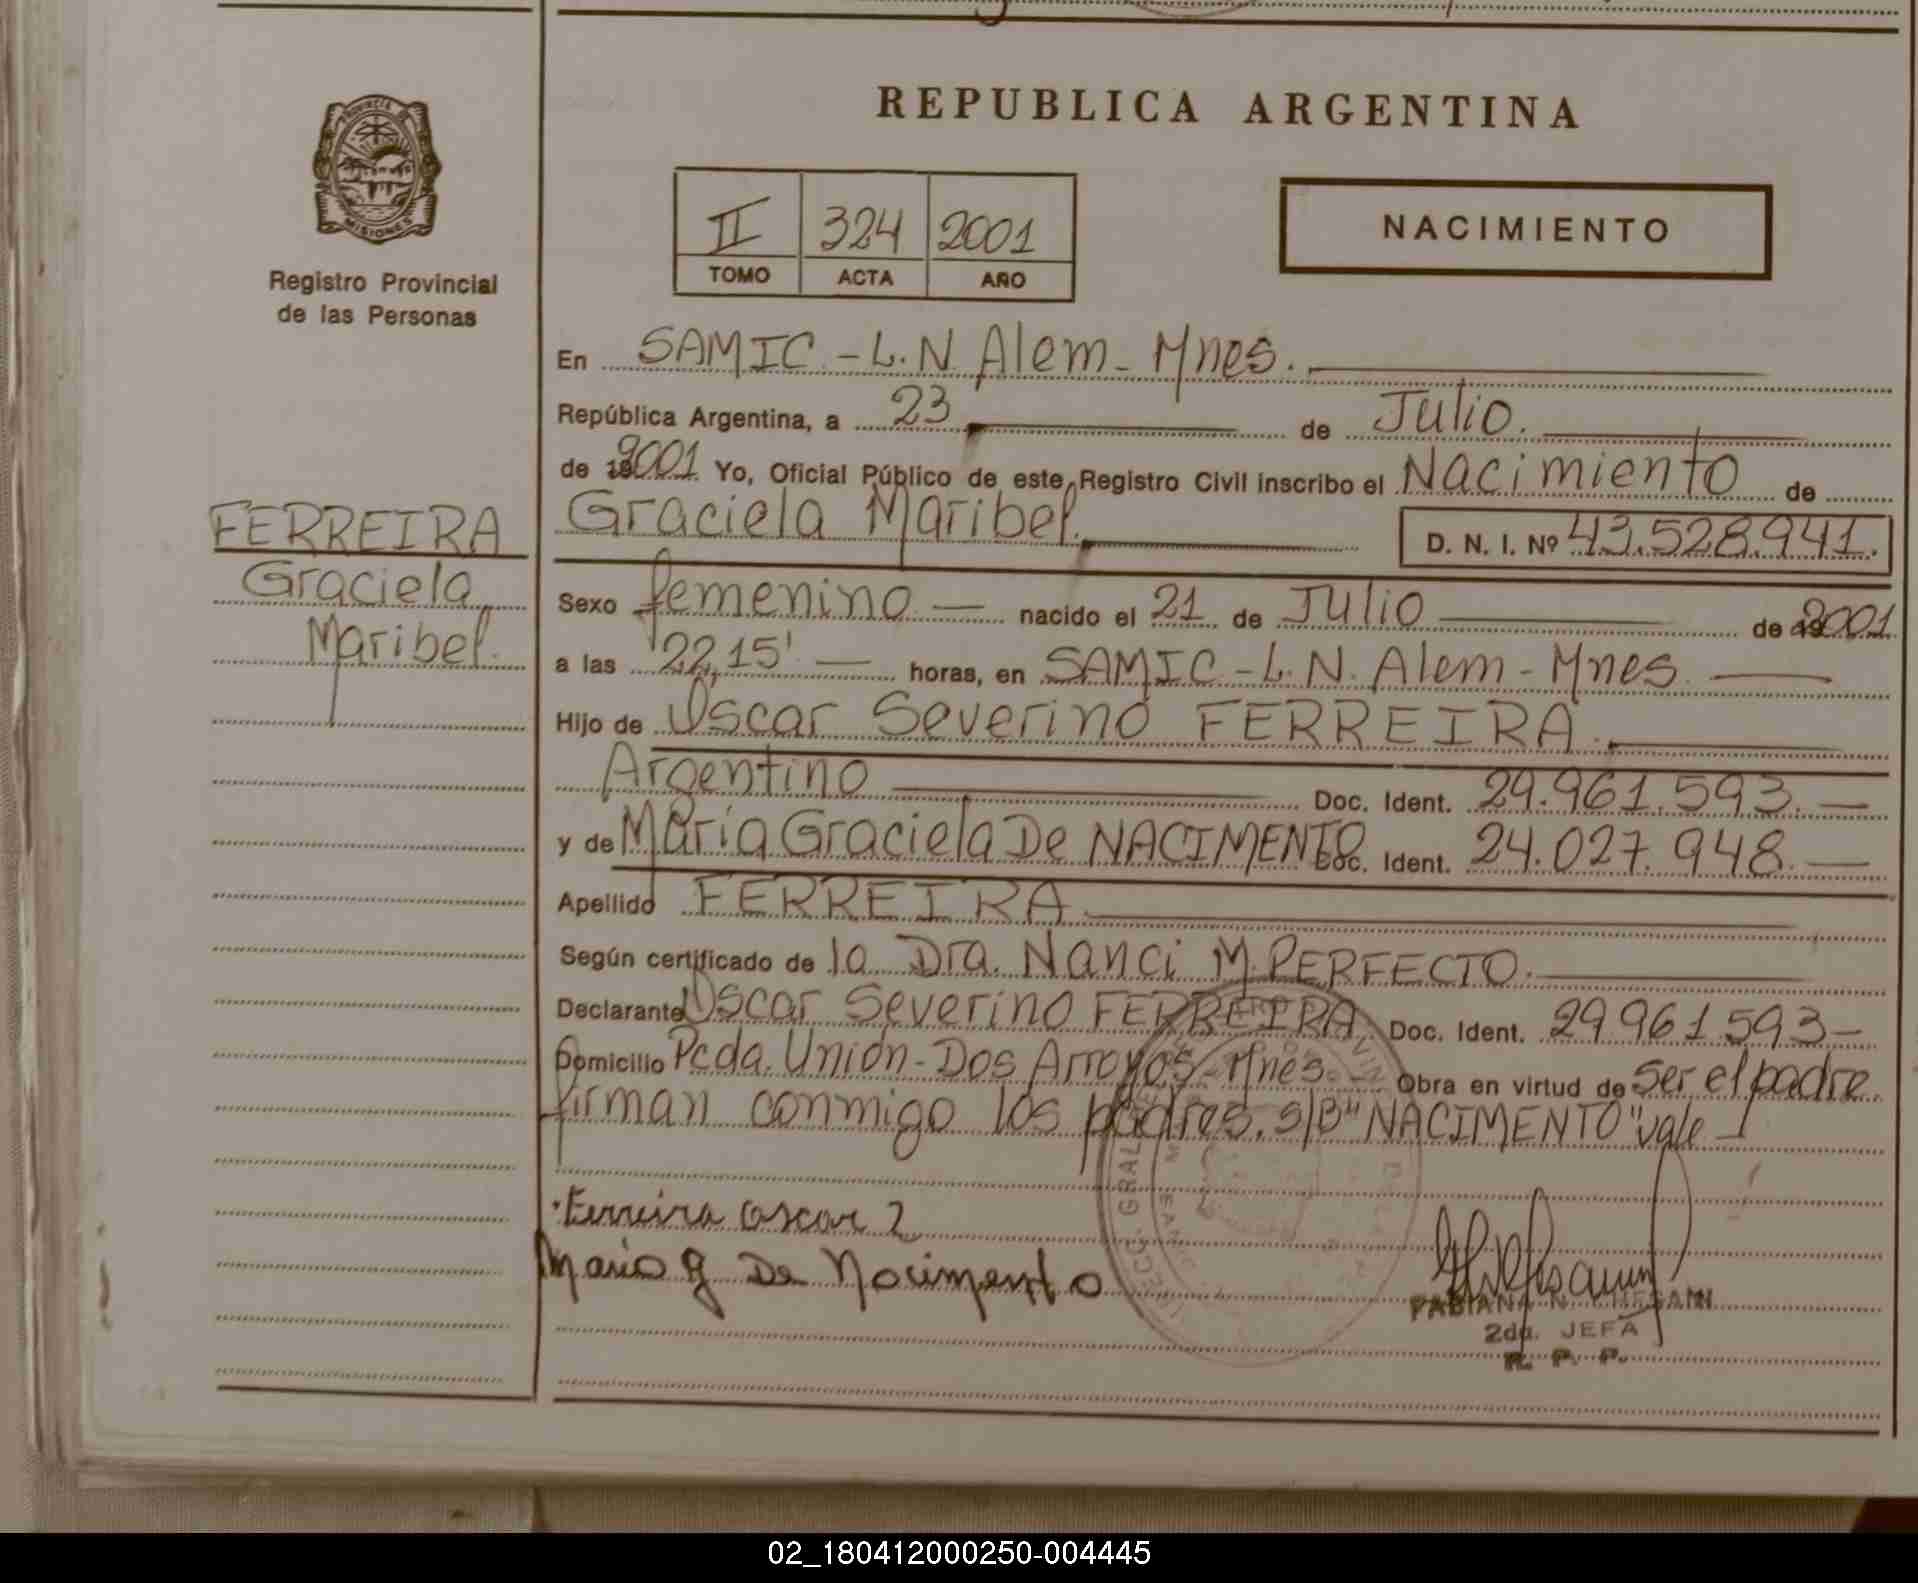 REPUBLICA ARGENTINA
PROVINCIA
MISIONES
Registro Provincial
de las Personas
II 324 2001
TOMO ACTA AÑO
NACIMIENTO
En SAMIC - L. N. Alem - Mnes.
República Argentina, a 23 de Julio.
de 2001 Yo, Oficial Público de este Registro Civil inscribo el Nacimiento de
Graciela Maribel. D. N. I. Nº 43.528.941.
FERREIRA
Graciela
Maribel.
Sexo femenino nacido el 21 de Julio de 2001
a las 22,15' horas, en SAMIC - L. N. Alem - Mnes.
Hijo de Oscar Severino FERREIRA.
Argentino Doc. Ident. 29.961.593.
y de María Graciela De NACIMENTO Doc. Ident. 24.027.948.
Apellido FERREIRA
Según certificado de la Dra. Nanci M. PERFECTO.
Declarante Oscar Severino FERREIRA Doc. Ident. 29.961.593
Domicilio Pcda. Unión - Dos Arroyos - Mnes. Obra en virtud de Ser el padre
firman conmigo los padres. S/B "NACIMENTO" vale
Ferreira Oscar
Maria g De Nacimento
FABIANA N.
2da. JEFA
R. P. P.
02_180412000250-004445